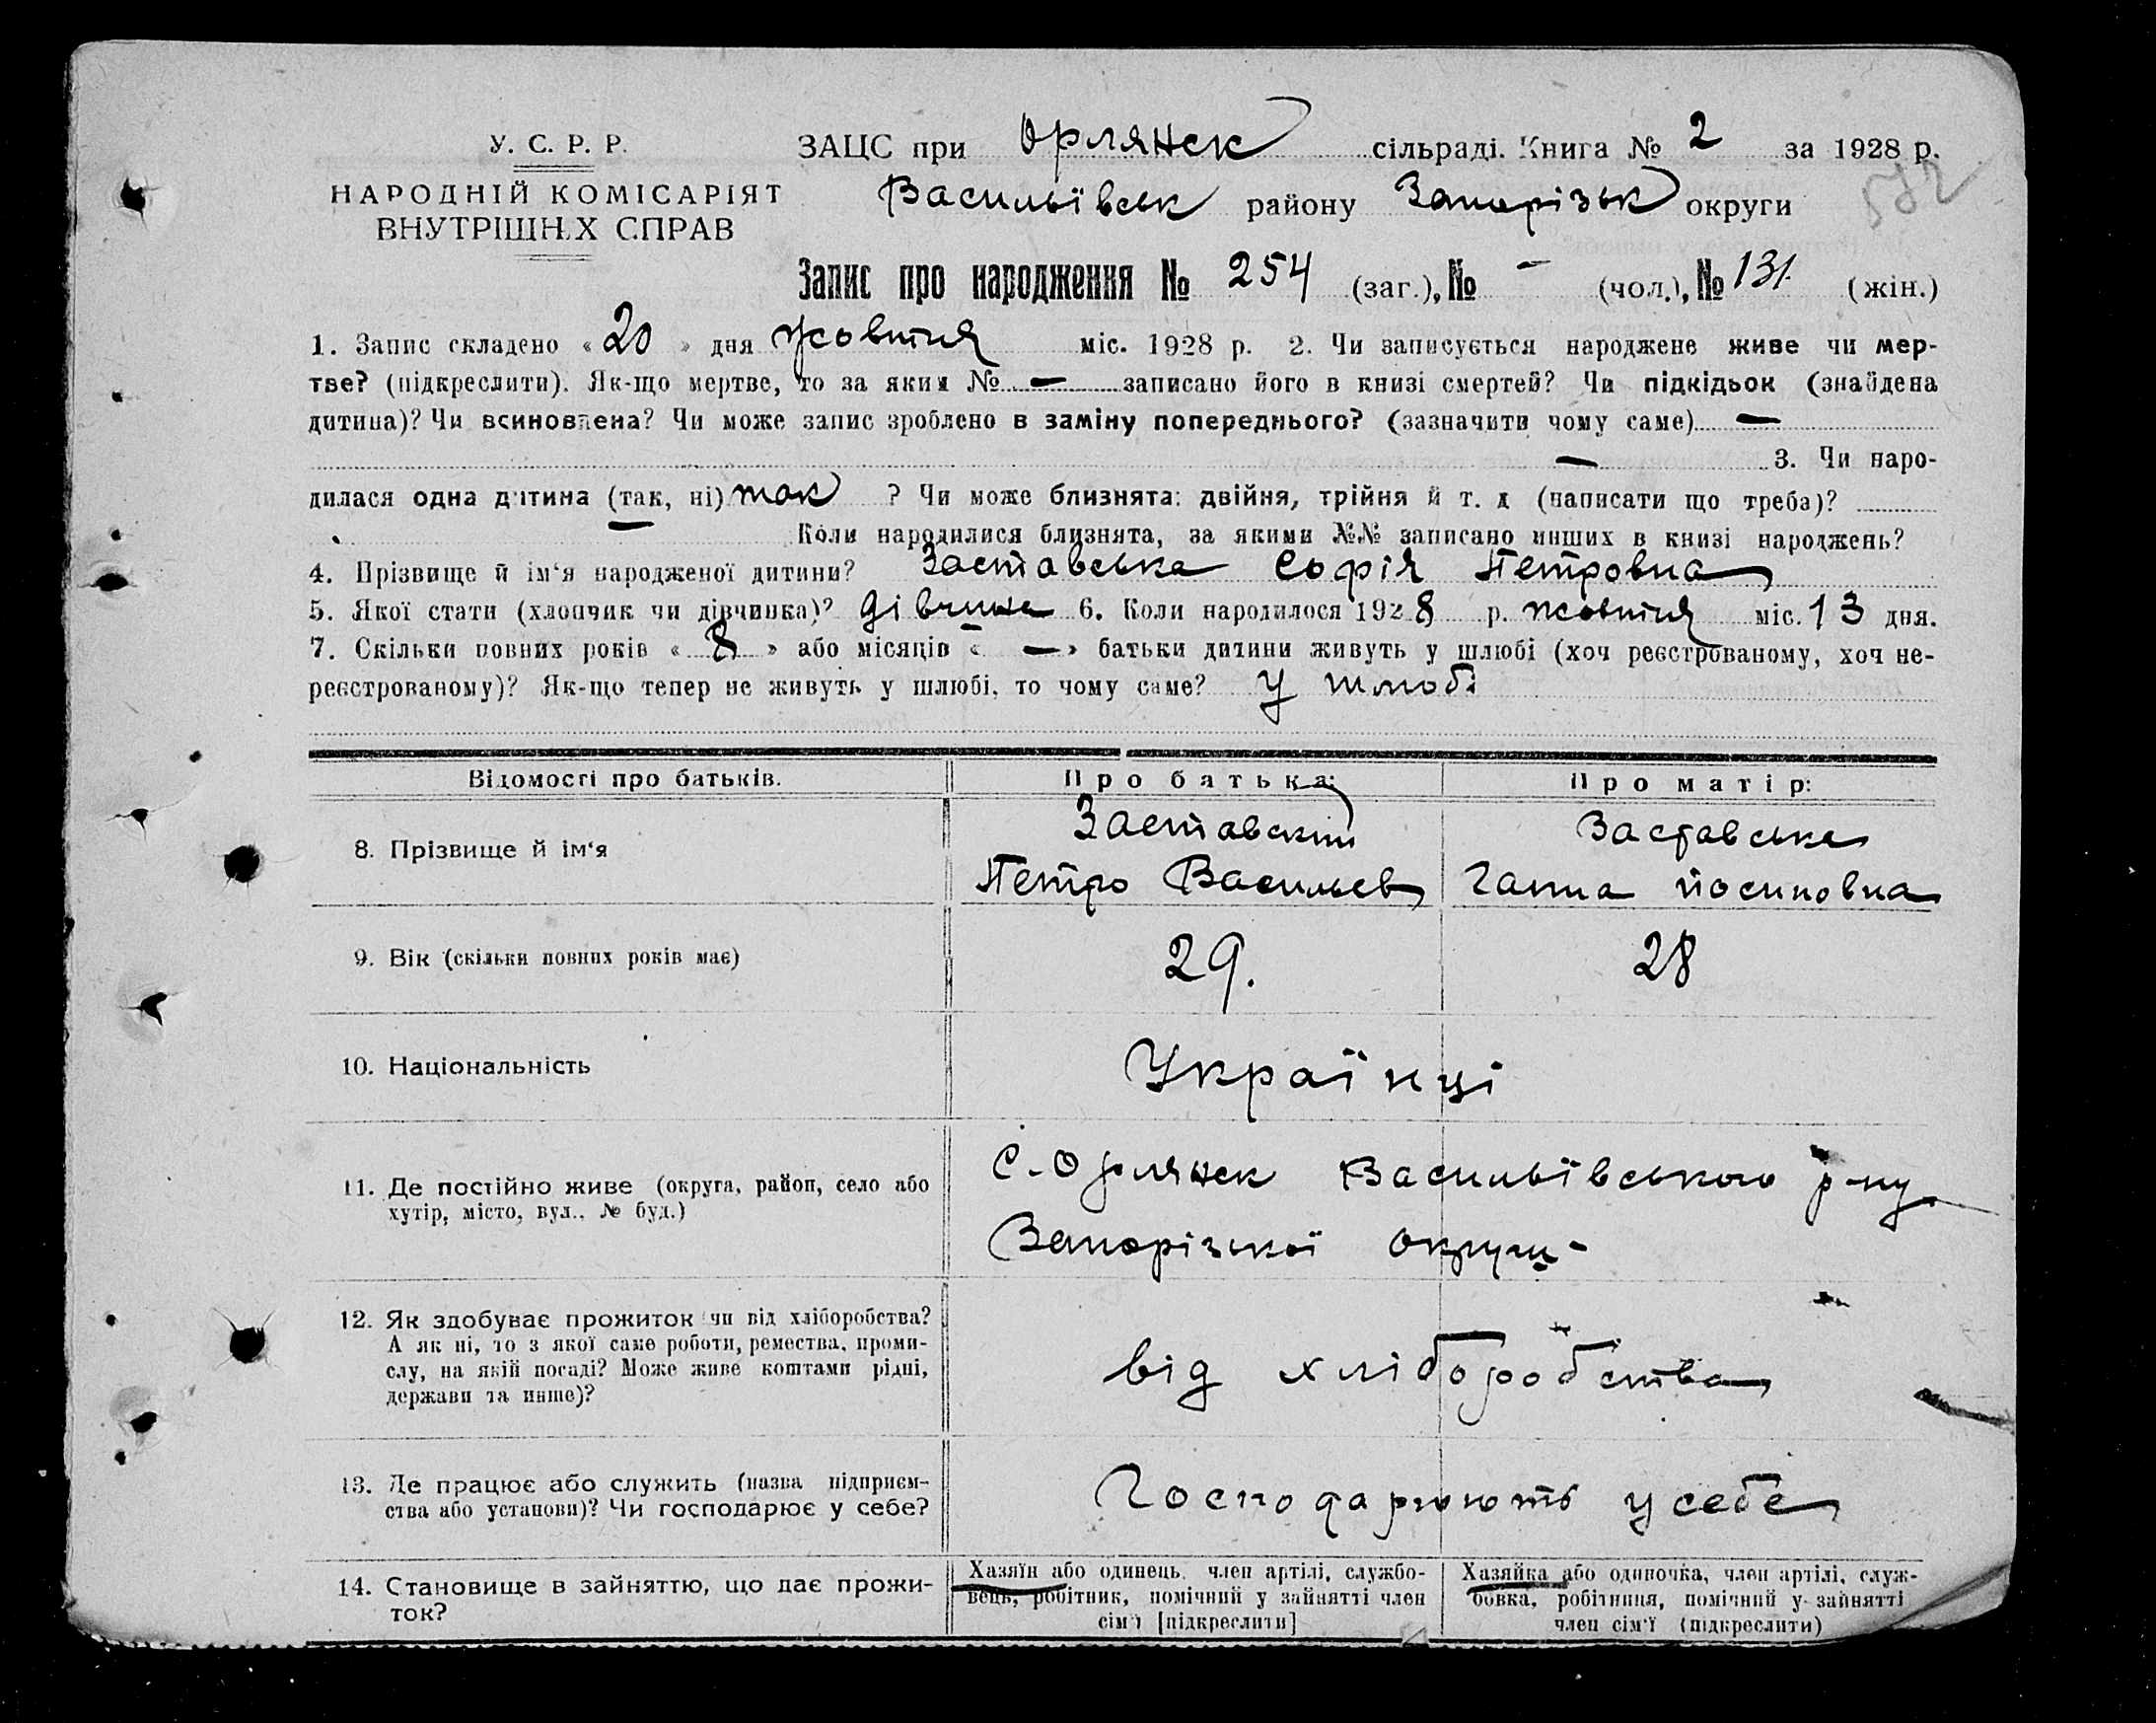 У. С. Р. Р.
НАРОДНІЙ КОМІСАРІЯТ
ВНУТРІШНІХ СПРАВ
ЗАЦС при Орлянск сільраді. Книга № 2 за 1928 р.
Васильївськ району Запорізьк округи
Запис про народження № 254 (заг.), № - (чол.), № 131 (жін.)
1. Запис складено « 20 » дня жовтня міс. 1928 р. 2. Чи записується народжене живе чи мер-
тве? (підкреслити). Як-що мертве, то за яким № — записано його в книзі смертей? Чи підкідьок (знайдена
дитина)? Чи всиновлена? Чи може запис зроблено в заміну попереднього? (зазначити чому саме) —
— 3. Чи наро-
дилася одна дитина (так, ні) так ? Чи може близнята: двійня, трійня й т. д (написати що треба)?
— Коли народилися близнята, за якими №№ записано инших в книзі народжень?
4. Прізвище й ім‘я народженої дитини? Заставська Софія Петровна
5. Якої стати (хлопчик чи дівчинка)? дівчина 6. Коли народилося 1928 р. жовтня міс. 13 дня.
7. Скільки повних років « 8 » або місяців « — » батьки дитини живуть у шлюбі (хоч реєстрованому, хоч не-
реєстрованому)? Як-що тепер не живуть у шлюбі, то чому саме? У шлюбі
Відомості про батьків. Про батька: Про матір:
8. Прізвище й ім‘я
Заставский
Петро Васильев
Заставська
Ганна йосиповна
9. Вік (скільки повних років має) 29. 28
10. Національність Українці
11. Де постійно живе (округа, район, село або
хутір, місто, вул., № буд.)
С. Орлянск Васильївського р-ну
Запорізької округи -
12. Як здобуває прожиток чи від хліборобства?
А як ні, то з якої саме роботи, ремества, проми-
слу, на якій посаді? Може живе коштами рідні,
держави та инше)?
від хліборобства
13. Де працює або служить (назва підприєм-
ства або установи)? Чи господарює у себе?
Господарюють у себе
14. Становище в зайняттю, що дає прожи-
ток?
Хазяїн або одинець, член артілі, службо-
вець, робітник, помічний у зайнятті член
сім'ї [підкреслити]
Хазяйка або одиночка, член артілі, служ-
бовка, робітниця, помічний у зайнятті
член сім'ї (підкреслити)